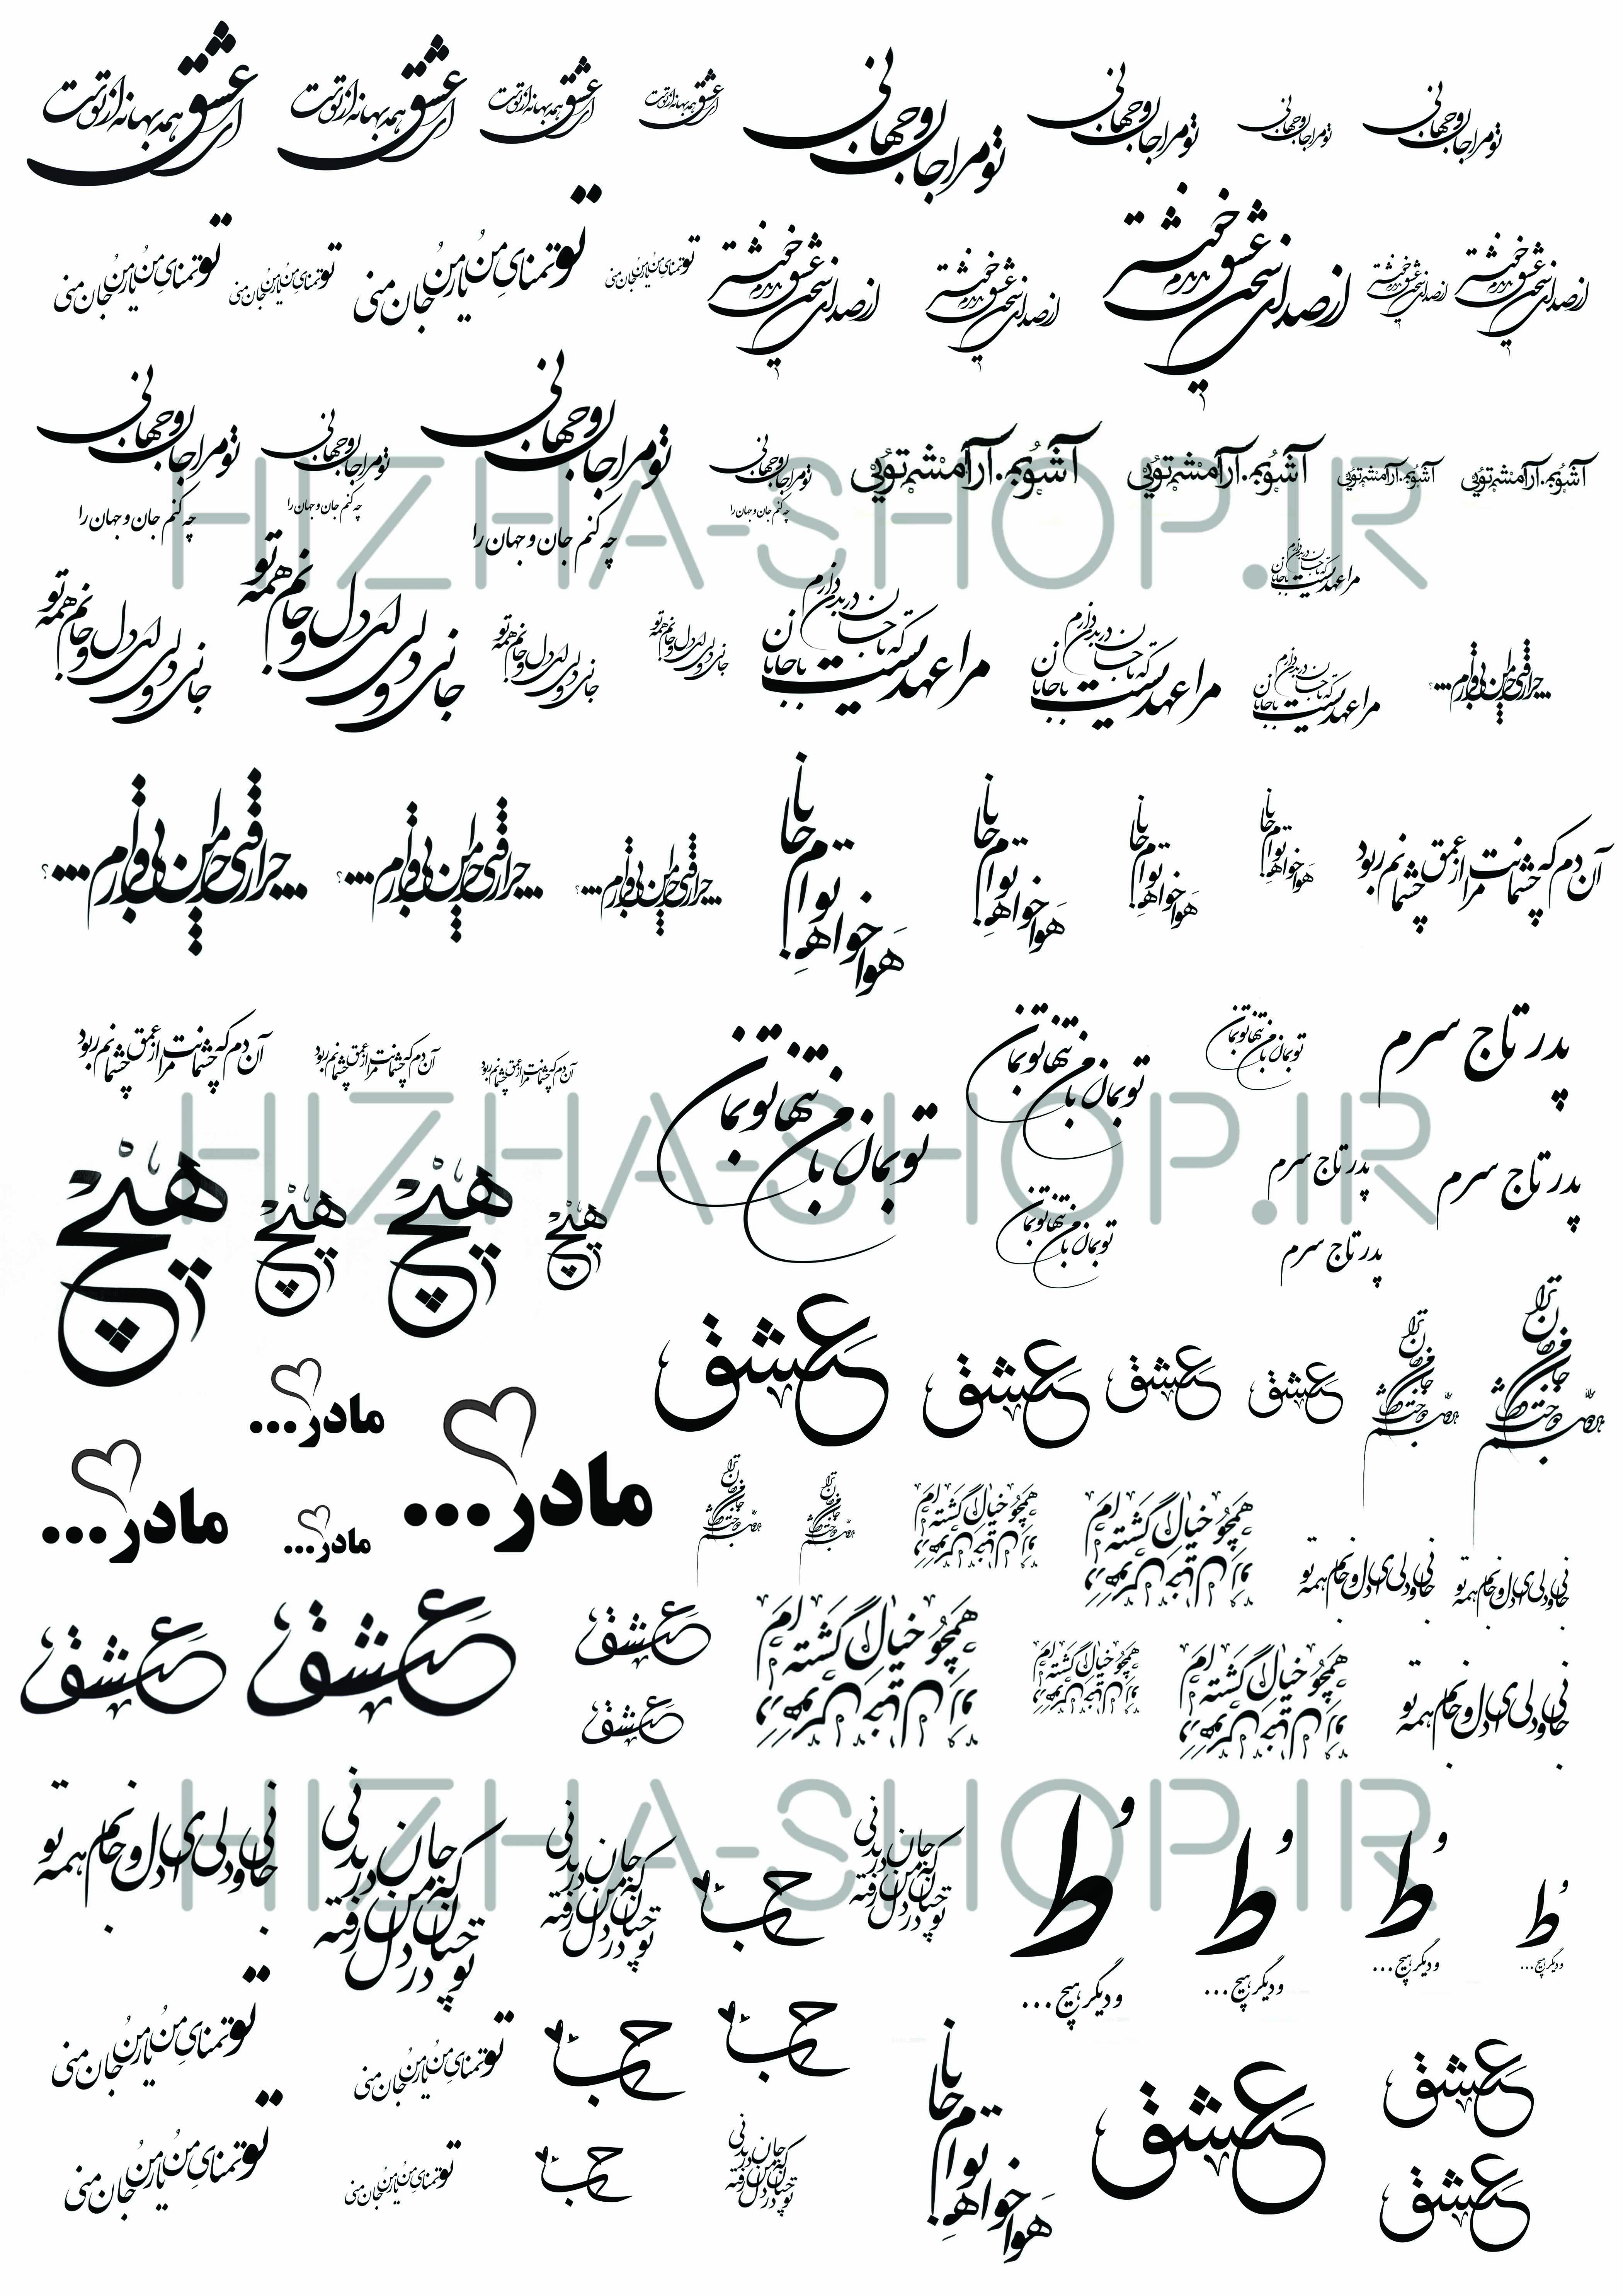 ای عشق همه بهانه از توست
ای عشق همه بهانه از توست
ای عشق همه بهانه از توست
ای عشق همه بهانه از توست
تو مرا جان و جهانی
تو مرا جان و جهانی
تو مرا جان و جهانی
تو مرا جان و جهانی
تو تمنای من و یار من و جان منی
تو تمنای من و یار من و جان منی
تو تمنای من و یار من و جان منی
تو تمنای من و یار من و جان منی
از صدای سخن عشق ندیدم خوشتر
از صدای سخن عشق ندیدم خوشتر
از صدای سخن عشق ندیدم خوشتر
از صدای سخن عشق ندیدم خوشتر
از صدای سخن عشق ندیدم خوشتر
تو مرا جان و جهانی
چه کنم جان و جهان را
تو مرا جان و جهانی
چه کنم جان و جهان را
تو مرا جان و جهانی
چه کنم جان و جهان را
تو مرا جان و جهانی
چه کنم جان و جهان را
آشوبم. آرامشم تویی
آشوبم. آرامشم تویی
آشوبم. آرامشم تویی
آشوبم. آرامشم تویی
HIZHA-SHOP.IR
مرا عهدیست با جانان که تا جان در بدن دارم
جانی و دلی ای دل و جانم همه تو
جانی و دلی ای دل و جانم همه تو
جانی و دلی ای دل و جانم همه تو
جانی و دلی ای دل و جانم همه تو
مرا عهدیست با جانان که تا جان در بدن دارم
مرا عهدیست با جانان که تا جان در بدن دارم
مرا عهدیست با جانان که تا جان در بدن دارم
جانا
هواخواه توام
جانا
هواخواه توام
جانا
هواخواه توام
جانا
هواخواه توام
آن دم که چشمانت مرا از عمق چشمانم ربود
آن دم که چشمانت مرا از عمق چشمانم ربود
آن دم که چشمانت مرا از عمق چشمانم ربود
آن دم که چشمانت مرا از عمق چشمانم ربود
تو بمان با من تنها تو بمان
تو بمان با من تنها تو بمان
تو بمان با من تنها تو بمان
پدر تاج سرم
HIZHA-SHOP.IR
هیچ
هیچ
هیچ
هیچ
تو بمان با من تنها تو بمان
پدر تاج سرم
پدر تاج سرم
پدر تاج سرم
عشق
عشق
عشق
عشق
مادر...
مادر...
مادر...
مادر...
همچو خیال گشته ام
همچو خیال گشته ام
جانی و دلی ای دل و جانم همه تو
جانی و دلی ای دل و جانم همه تو
عشق
عشق
عشق
عشق
همچو خیال گشته ام
همچو خیال گشته ام
همچو خیال گشته ام
جانی و دلی ای دل و جانم همه تو
HIZHA-SHOP.IR
جانی و دلی ای دل و جانم همه تو
تو چنان در دل من رفته که جان در بدنی
تو چنان در دل من رفته که جان در بدنی
حب
تو چنان در دل من رفته که جان در بدنی
طُ
و دیگر هیچ...
طُ
و دیگر هیچ...
طُ
و دیگر هیچ...
طُ
و دیگر هیچ...
تو تمنای من و یار من و جان منی
تو تمنای من و یار من و جان منی
حب
حب
تو تمنای من و یار من و جان منی
تو تمنای من و یار من و جان منی
حب
تو چنان در دل من رفته که جان در بدنی
جانا
هواخواه توام
عشق
عشق
عشق